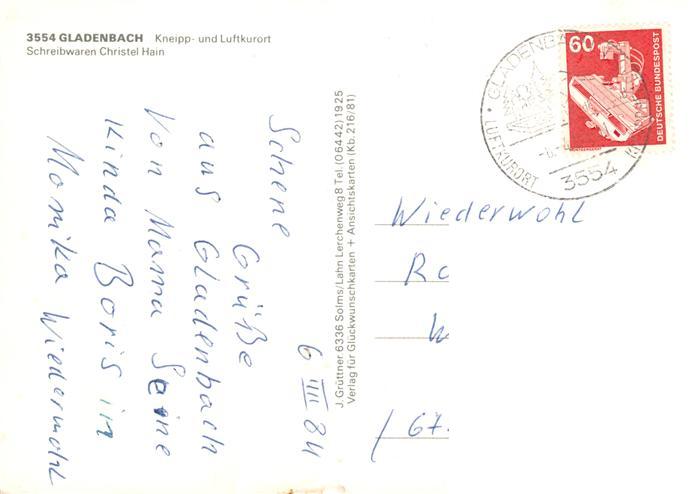 3554 GLADENBACH Kneipp- und Luftkurort
Schreibwaren Christel Hain
6 IIII 84
Schene
Grüße
aus Gladenbach
Von Mama Seine
Kinda Boris in
Monika Wiedermohl
J. Grüttner 6336 Solms/Lahn Lerchenweg 8 Tel. (06442) 1925
Verlag für Glückwunschkarten + Ansichtskarten (Kb. 216/81)
GLADENBA
LUFTKURORT
3554
60
DEUTSCHE BUNDESPOST
Wiederwohl
Rc
W
/ 67.